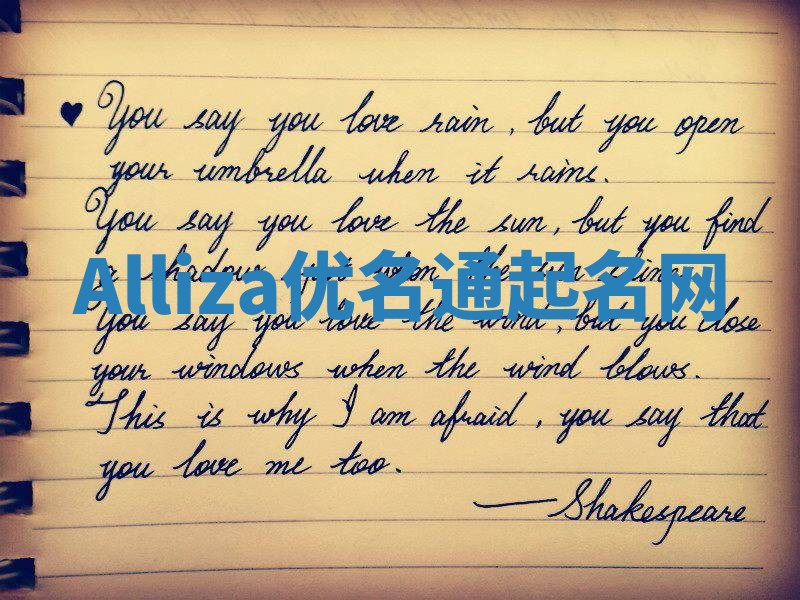 ♥ You say you love rain, but you open
your umbrella when it rains.
You say you love the sun, but you find
a shadow spot when the sun shines.
Alliza优名通起名网
You say you love the wind, but you close
your windows when the wind blows.
This is why I am afraid, you say that
you love me too.
— Shakespeare